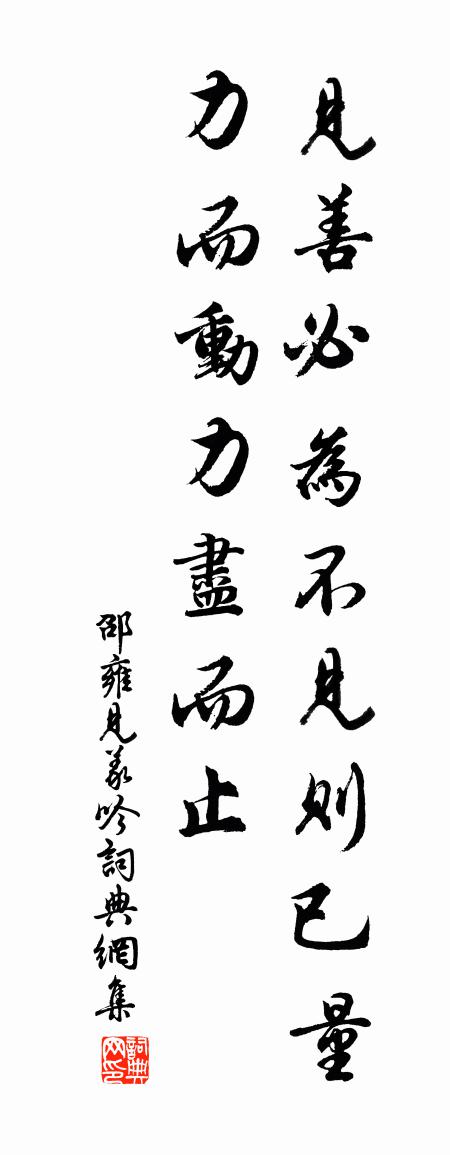 見善必為不見則已量
力而動力盡而止
邵雍見義吟詞典網集
詞典网印